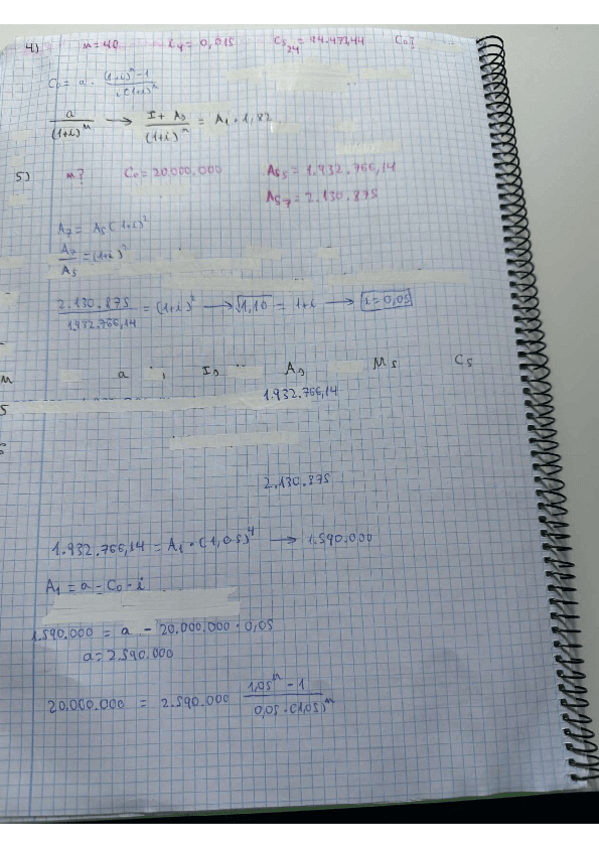 4) n=40 i4=0,015 Cs24=44.473,44 Co?
Co= a · (1+i)^n-1 / i(1+i)^n
a / (1+i)^n → I+As / (1+i)^n = A1 · 1,82
5) n? Co=20.000.000 As5=1.932.766,14
As7=2.130.875
A7= A5(1+i)^2
A7 / A5 =(1+i)^2
2.130.875 / 1.932.766,14 = (1+i)^2 → √1,10 = 1+i → i=0,05
n a Is As Ms Cs
5 1.932.766,14
2.130.875
1.932.766,14 = A1 · (1,05)^4 → 1.590.000
A1 = a - Co · i
1.590.000 = a - 20.000.000 · 0,05
a=2.590.000
20.000.000 = 2.590.000 1,05^n - 1 / 0,05 · (1,05)^n